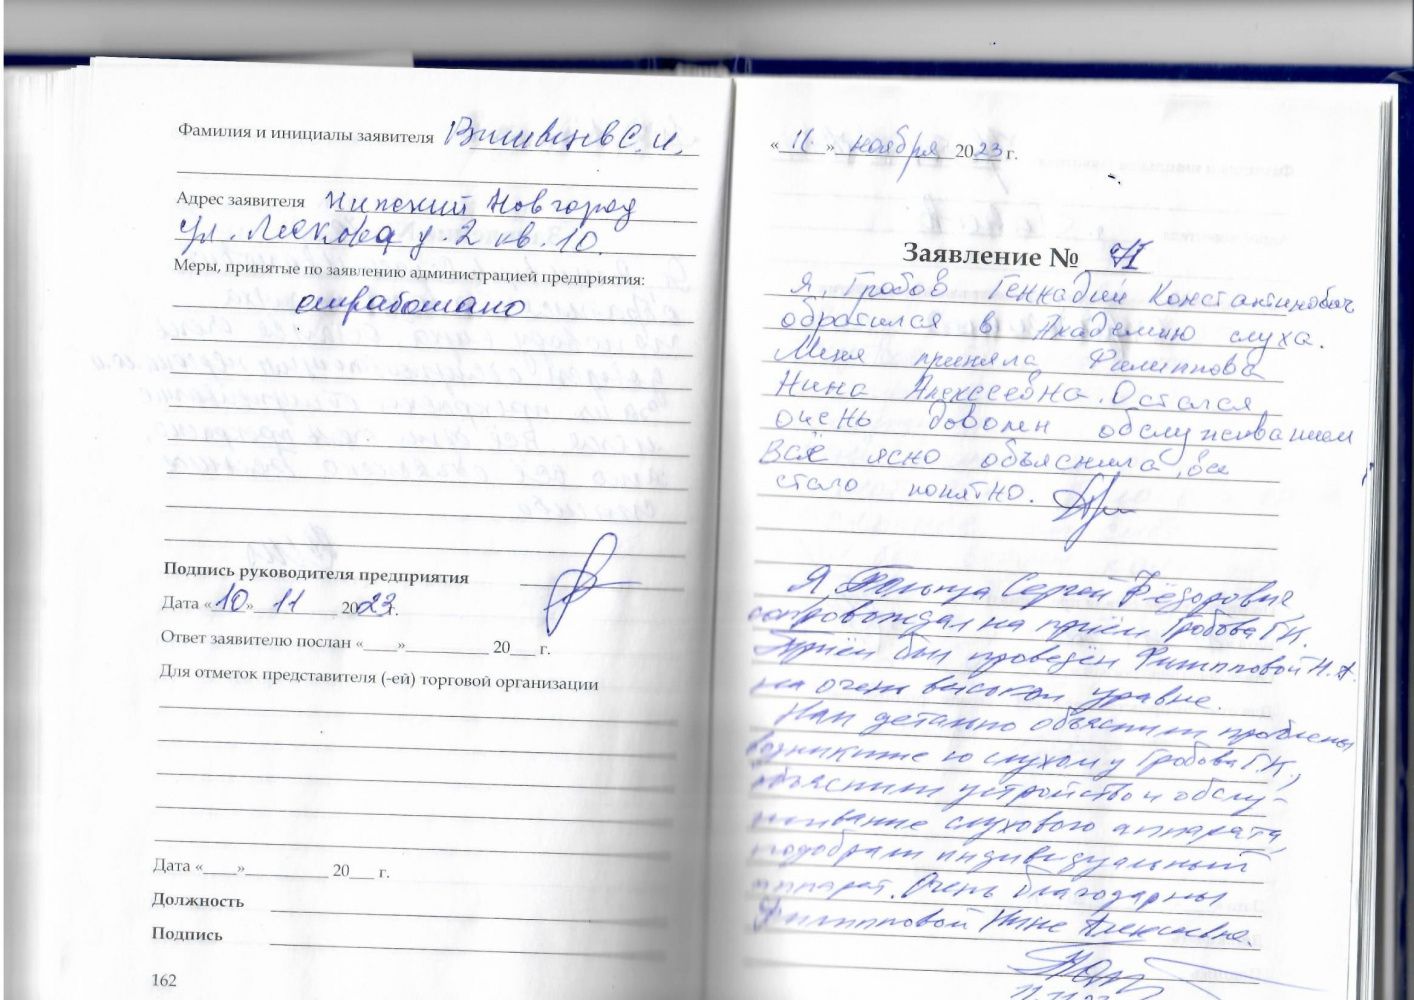 Фамилия и инициалы заявителя С.И.
Адрес заявителя Нижний Новгород
ул. д. 2 кв. 10.
Меры, принятые по заявлению администрацией предприятия:
отработано
Подпись руководителя предприятия
Дата «10» 11 2023г.
Ответ заявителю послан «____»__________ 20___ г.
Для отметок представителя (-ей) торговой организации
Дата «____»__________ 20___ г.
Должность
Подпись
162
«11» ноября 2023 г.
Заявление №
Я, Гробов Геннадий Константинович
обратился в Академию слуха.
Меня приняла Филиппова
Нина Алексеевна. Остался
очень доволен обслуживанием
Всё ясно объяснила, все
стало понятно.
Я, Сергей Фёдорович,
сопровождал на приём Гробова Г.К.
Приём был проведён Филипповой Н.А.
на очень высоком уровне.
Нам детально объяснили проблемы
возникшие со слухом у Гробова Г.К.,
объяснили устройство и обслу-
живание слухового аппарата,
подобрали индивидуальный
аппарат. Очень благодарны
Филипповой Нине Алексеевне.